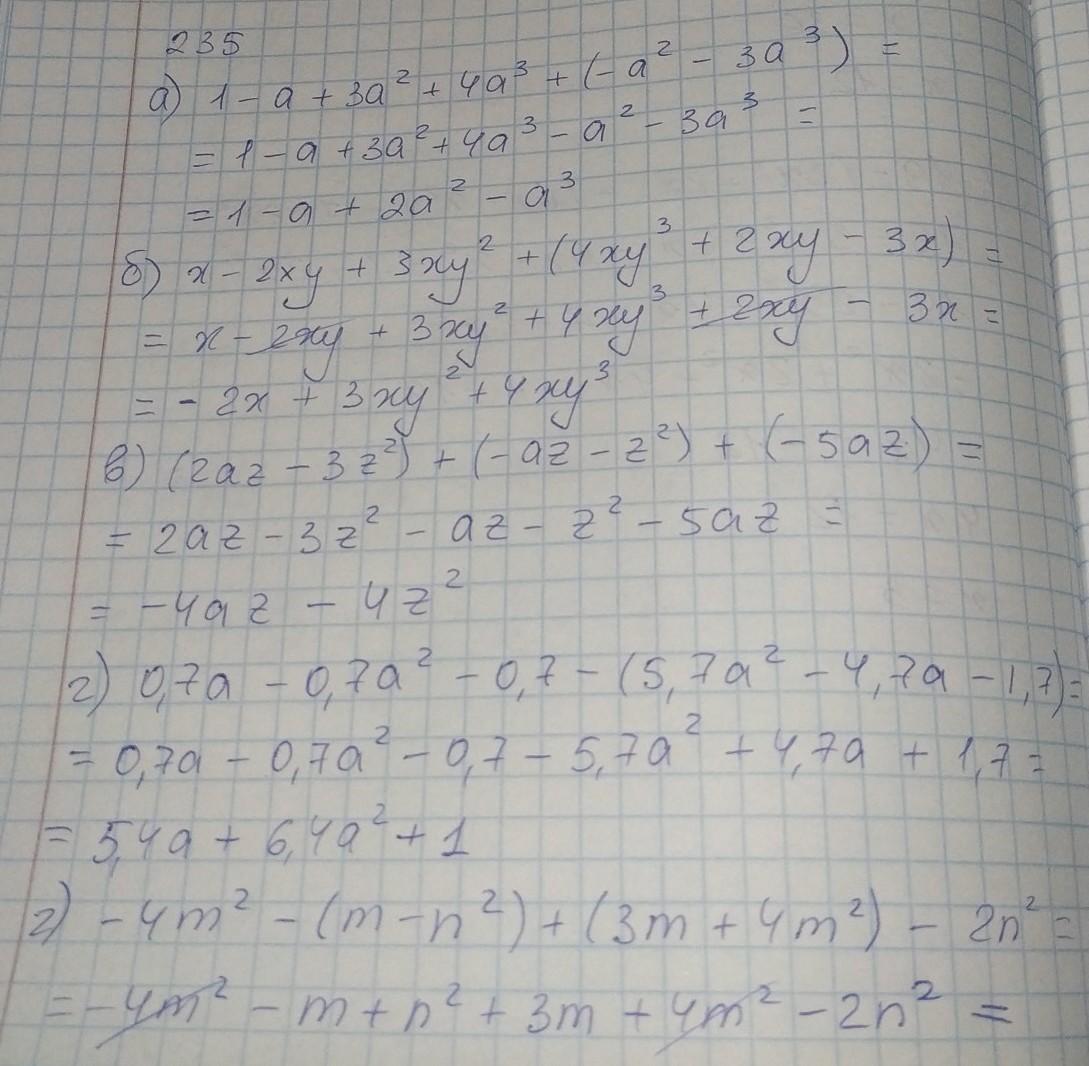 235
а) 1 - a + 3a² + 4a³ + (-a² - 3a³) =
= 1 - a + 3a² + 4a³ - a² - 3a³ =
= 1 - a + 2a² - a³
б) x - 2xy + 3xy² + (4xy³ + 2xy - 3x) =
= x - 2xy + 3xy² + 4xy³ + 2xy - 3x =
= - 2x + 3xy² + 4xy³
в) (2az - 3z²) + (-az - z²) + (-5az) =
= 2az - 3z² - az - z² - 5az =
= -4az - 4z²
г) 0,7a - 0,7a² - 0,7 - (5,7a² - 4,7a - 1,7) =
= 0,7a - 0,7a² - 0,7 - 5,7a² + 4,7a + 1,7 =
= 5,4a + 6,4a² + 1
г) -4m² - (m - n²) + (3m + 4m²) - 2n² =
= -4m² - m + n² + 3m + 4m² - 2n² =